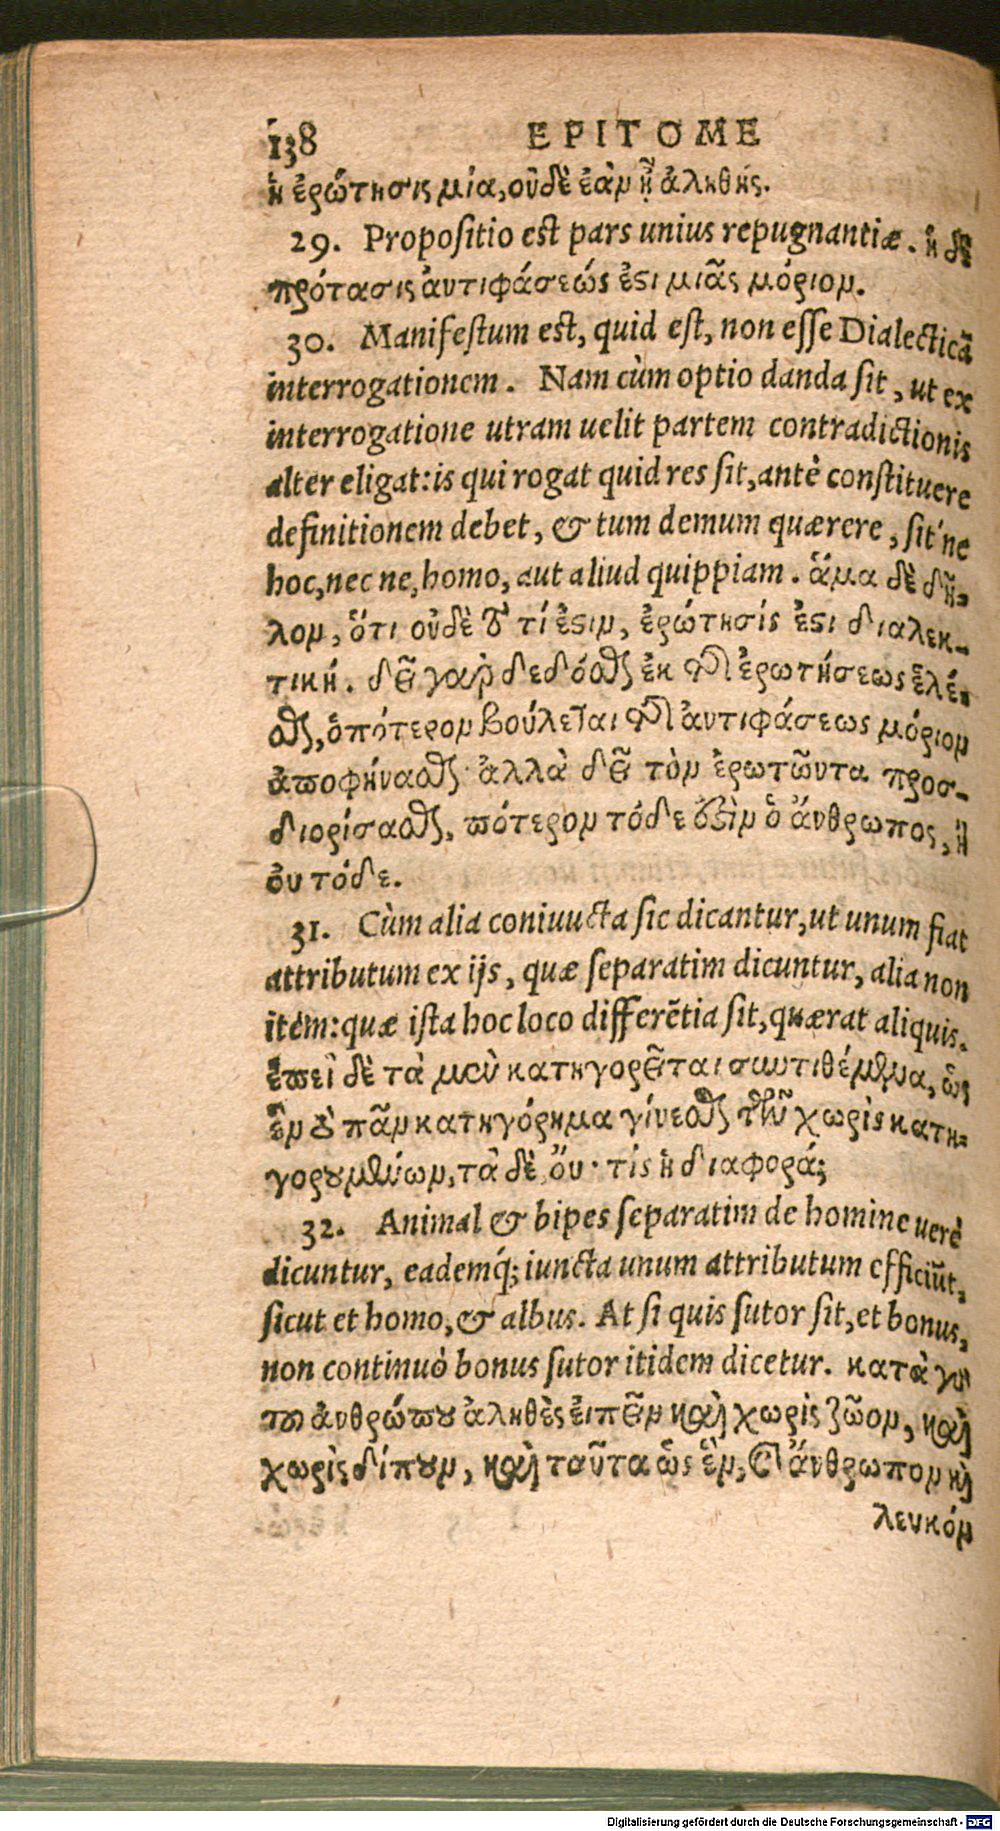 138 EPITOME
ἡ ἐρώτησις μία, οὐδὲ ἐὰν ᾖ ἀληθής.
29. Propoſitio est pars unius repugnantiæ. ἡ δὲ
πρότασις ἀντιφάσεώς ἐςι μιᾶς μόριον.
30. Manifeſtum est, quid eſt, non eſſe Dialecticā
interrogationem. Nam cùm optio danda ſit, ut ex
interrogatione utram uelit partem contradictionis
alter eligat: is qui rogat quid res ſit, antè conſtituere
definitionem debet, & tum demum quærere, ſit'ne
hoc, nec ne, homo, aut aliud quippiam. ἅμα δὲ δῆ-
λον, ὅτι οὐδὲ τὸ τί ἐςιν, ἐρώτησίς ἐςι διαλεκ-
τική. δεῖ γὰρ δεδόσθαι ἐκ τῆς ἐρωτήσεως ἑλέ-
σθαι, ὁπότερον βούλεται τῆς ἀντιφάσεως μόριον
ἀποφήνασθαι· ἀλλὰ δεῖ τὸν ἐρωτῶντα προσ-
διορίσασθαι, πότερον τόδε ἐςὶν ὁ ἄνθρωπος, ἢ
οὐ τόδε.
31. Cùm alia coniuucta ſic dicantur, ut unum fiat
attributum ex ijs, quæ ſeparatim dicuntur, alia non
item: quæ iſta hoc loco differẽtia ſit, quærat aliquis.
ἐπεὶ δὲ τὰ μὲν κατηγορεῖται συντιθέμενα, ὡς
ἓν τὸ πᾶν κατηγόρημα γίνεσθαι τῶν χωρὶς κατη-
γορουμένων, τὰ δὲ, οὔ· τίς ἡ διαφορά;
32. Animal & bipes ſeparatim de homine uerè
dicuntur, eademq́; iuncta unum attributum efficiũt,
ſicut et homo, & albus. At ſi quis ſutor ſit, et bonus,
non continuò bonus ſutor itidem dicetur. κατὰ γὰρ
τοῦ ἀνθρώπου ἀληθὲς εἰπεῖν καὶ χωρὶς ζῶον, καὶ
χωρὶς δίπουν, καὶ ταῦτα ὡς ἓν, καὶ ἄνθρωπον καὶ
λευκόν
Digitalisierung gefördert durch die Deutsche Forschungsgemeinschaft - DFG